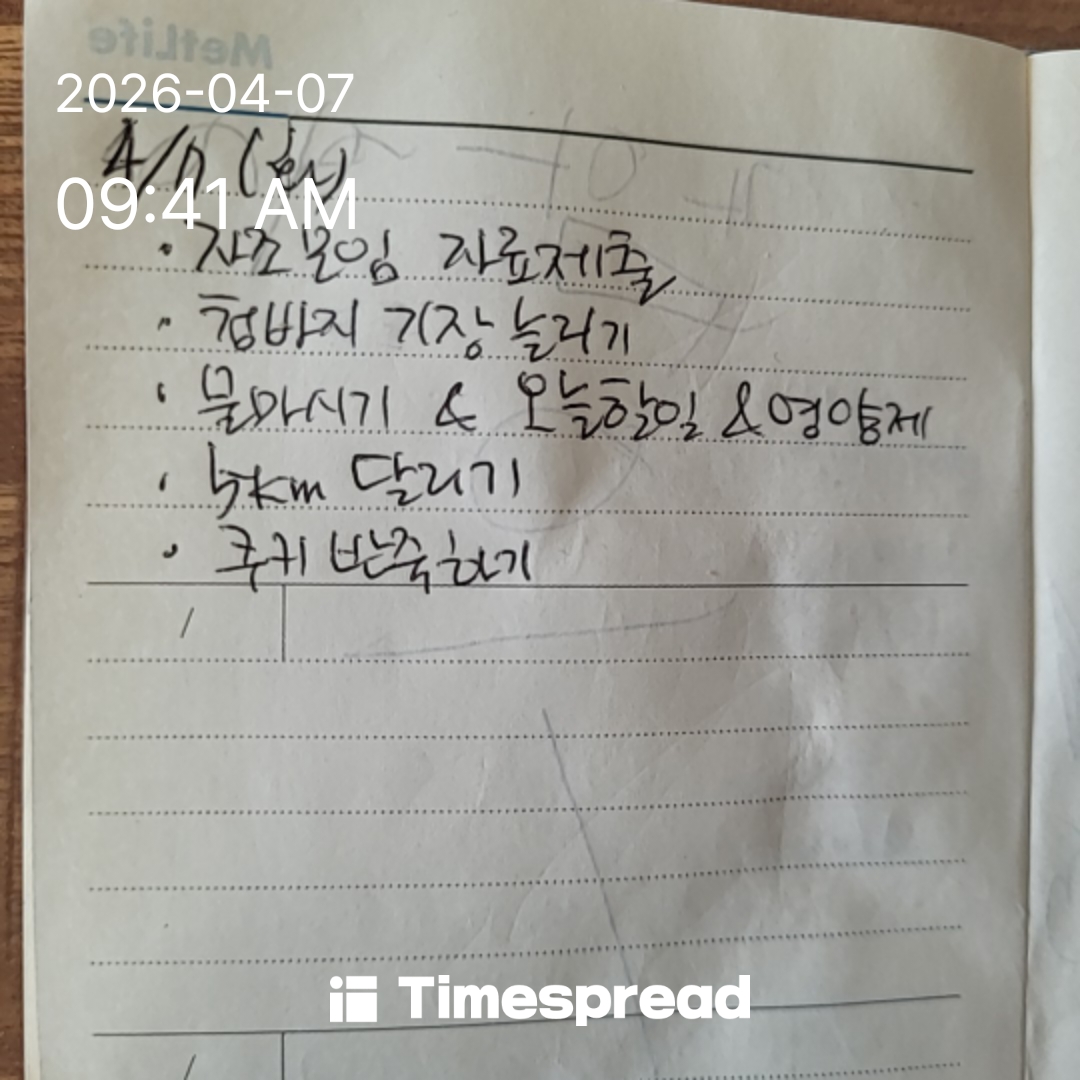 MetLife
2026-04-07
4/7 (화)
09:41 AM
· 자조모임 자료제출
· 청바지 기장 늘리기
· 물마시기 & 오늘할일 & 영양제
· 5km 달리기
· 쿠키 반죽하기
/
Timespread
/